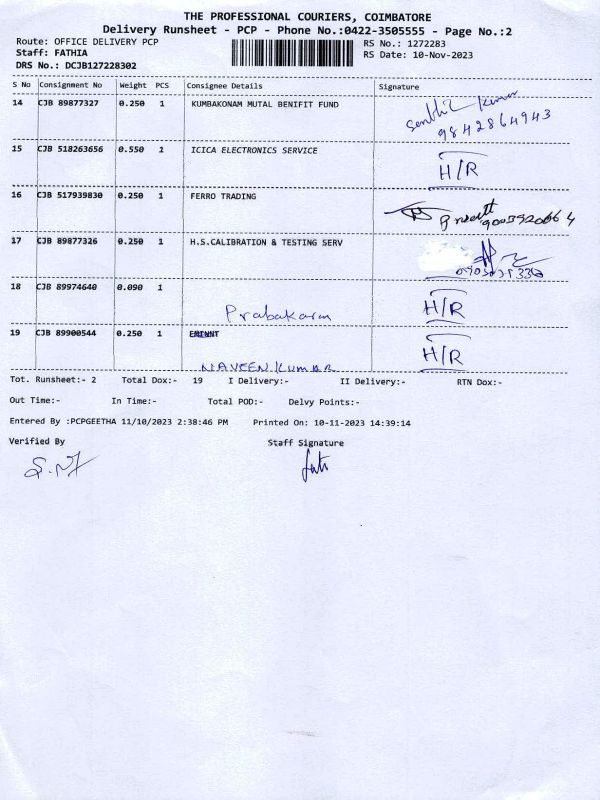 THE PROFESSIONAL COURIERS, COIMBATORE
Delivery Runsheet - PCP - Phone No.:0422-3505555 - Page No.:2
Route: OFFICE DELIVERY PCP RS No.: 1272283
Staff: FATHIA RS Date: 10-Nov-2023
DRS No.: DCJB127228302
S No Consignment No Weight PCS Consignee Details Signature
14 CJB 89877327 0.250 1 KUMBAKONAM MUTAL BENIFIT FUND Senthil Kumar
9842864943
15 CJB 518263656 0.550 1 ICICA ELECTRONICS SERVICE
H/R
16 CJB 517939830 0.250 1 FERRO TRADING
17 CJB 89877326 0.250 1 H.S.CALIBRATION & TESTING SERV
18 CJB 89974640 0.090 1
Prabakaran H/R
19 CJB 89900544 0.250 1
NAVEEN KUMAR H/R
Tot. Runsheet:- 2 Total Dox:- 19 I Delivery:- II Delivery:- RTN Dox:-
Out Time:- In Time:- Total POD:- Delvy Points:-
Entered By :PCPGEETHA 11/10/2023 2:38:46 PM Printed On: 10-11-2023 14:39:14
Verified By Staff Signature